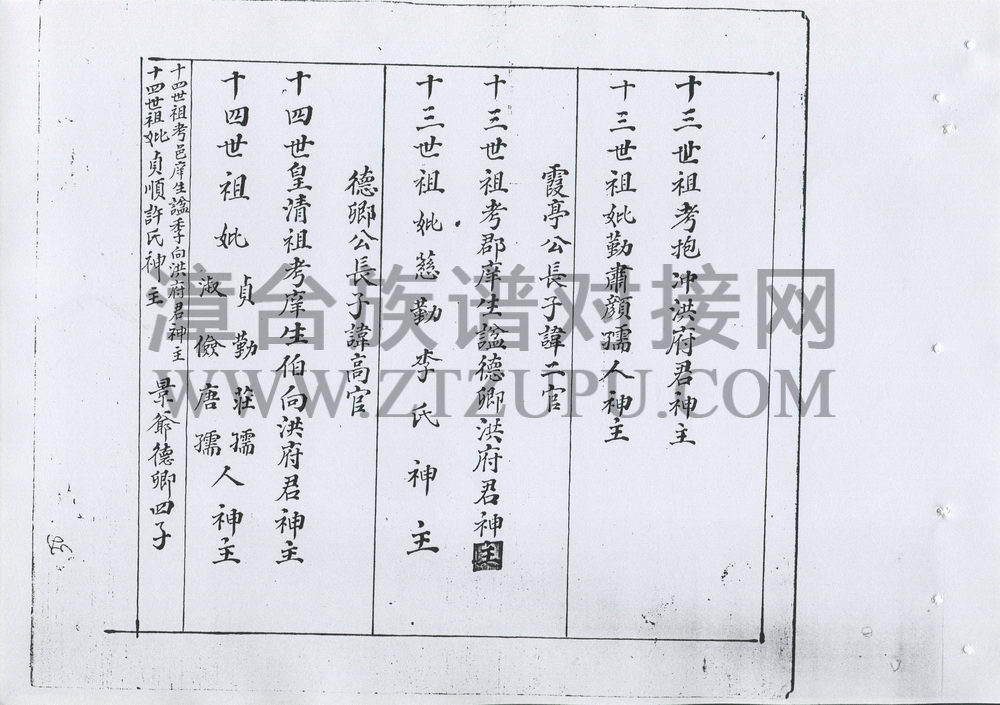 十三世祖考抱冲洪府君神主
十三世祖妣勤肅顔孺人神主
霞亭公長子諱二官
十三世祖考郡庠生諡德卿洪府君神主
十三世祖妣慈勤李氏神主
德卿公長子諱高官
十四世皇清祖考庠生伯向洪府君神主
十四世祖妣
貞勤莊孺
淑儉唐孺
人神主
十四世祖考邑庠生諡季向洪府君神主
十四世祖妣貞順許氏神主
景爺德卿四子
漳台族谱对接网
WWW.ZTZUPU.COM